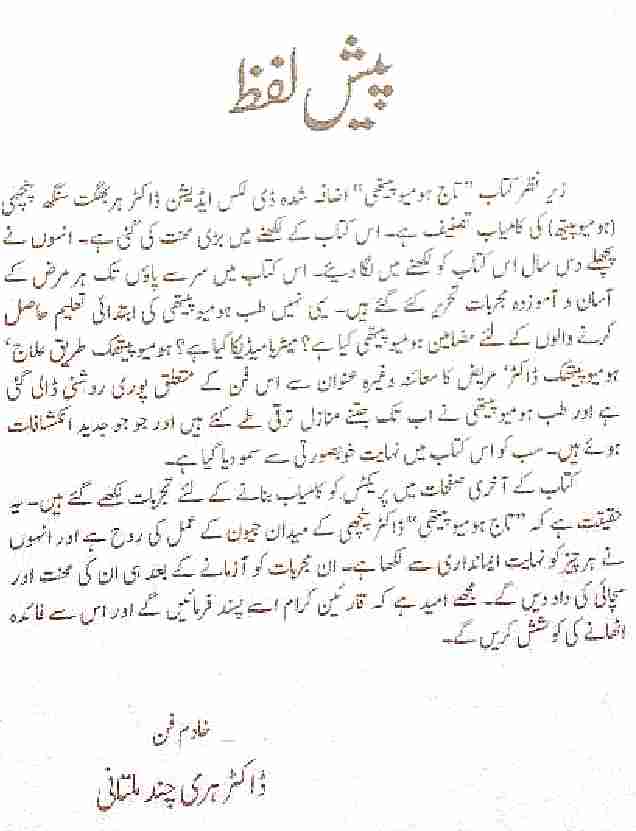 پیش لفظ
زیر نظر کتاب ’’تاج ہومیوپیتھی‘‘ اضافہ شدہ ڈی لکس ایڈیشن ڈاکٹر ہر بھگت سنگھ پنچھی
(ہومیوپیتھ) کی کامیاب تصنیف ہے۔ اس کتاب کے لکھنے میں بڑی محنت کی گئی ہے۔ انہوں نے
پچھلے دس سال اس کتاب کو لکھنے میں لگا دیئے۔ اس کتاب میں سر سے پاؤں تک ہر مرض کے
آسان و آموزدہ مجربات تحریر کئے گئے ہیں۔ یہی نہیں طب ہومیوپیتھی کی ابتدائی تعلیم حاصل
کرنے والوں کے لئے مضامین ہومیوپیتھی کیا ہے؟ میٹریا میڈیکا کیا ہے؟ ہومیوپیتھک طریق علاج‘
ہومیوپیتھک ڈاکٹر‘ مریض کا معائنہ وغیرہ عنوان سے اس فن کے متعلق پوری روشنی ڈالی گئی
ہے اور طب ہومیوپیتھی نے اب تک جتنے منازل ترقی طے کئے ہیں اور جو جو جدید انکشافات
ہوئے ہیں۔ سب کو اس کتاب میں نہایت خوبصورتی سے سمو دیا گیا ہے۔
کتاب کے آخری صفحات میں پریکٹس کو کامیاب بنانے کے لئے تجربات لکھے گئے ہیں۔ یہ
حقیقت ہے کہ ’’تاج ہومیوپیتھی‘‘ ڈاکٹر پنچھی کے میدان جیون کے عمل کی روح ہے اور انہوں
نے ہر چیز کو نہایت ایمانداری سے لکھا ہے۔ ان مجربات کو آزمانے کے بعد ہی ان کی محنت اور
سچائی کی داد دیں گے۔ مجھے امید ہے کہ قارئین کرام اسے پسند فرمائیں گے اور اس سے فائدہ
اٹھانے کی کوشش کریں گے۔
خادم فن
ڈاکٹر ہری چند ملتانی